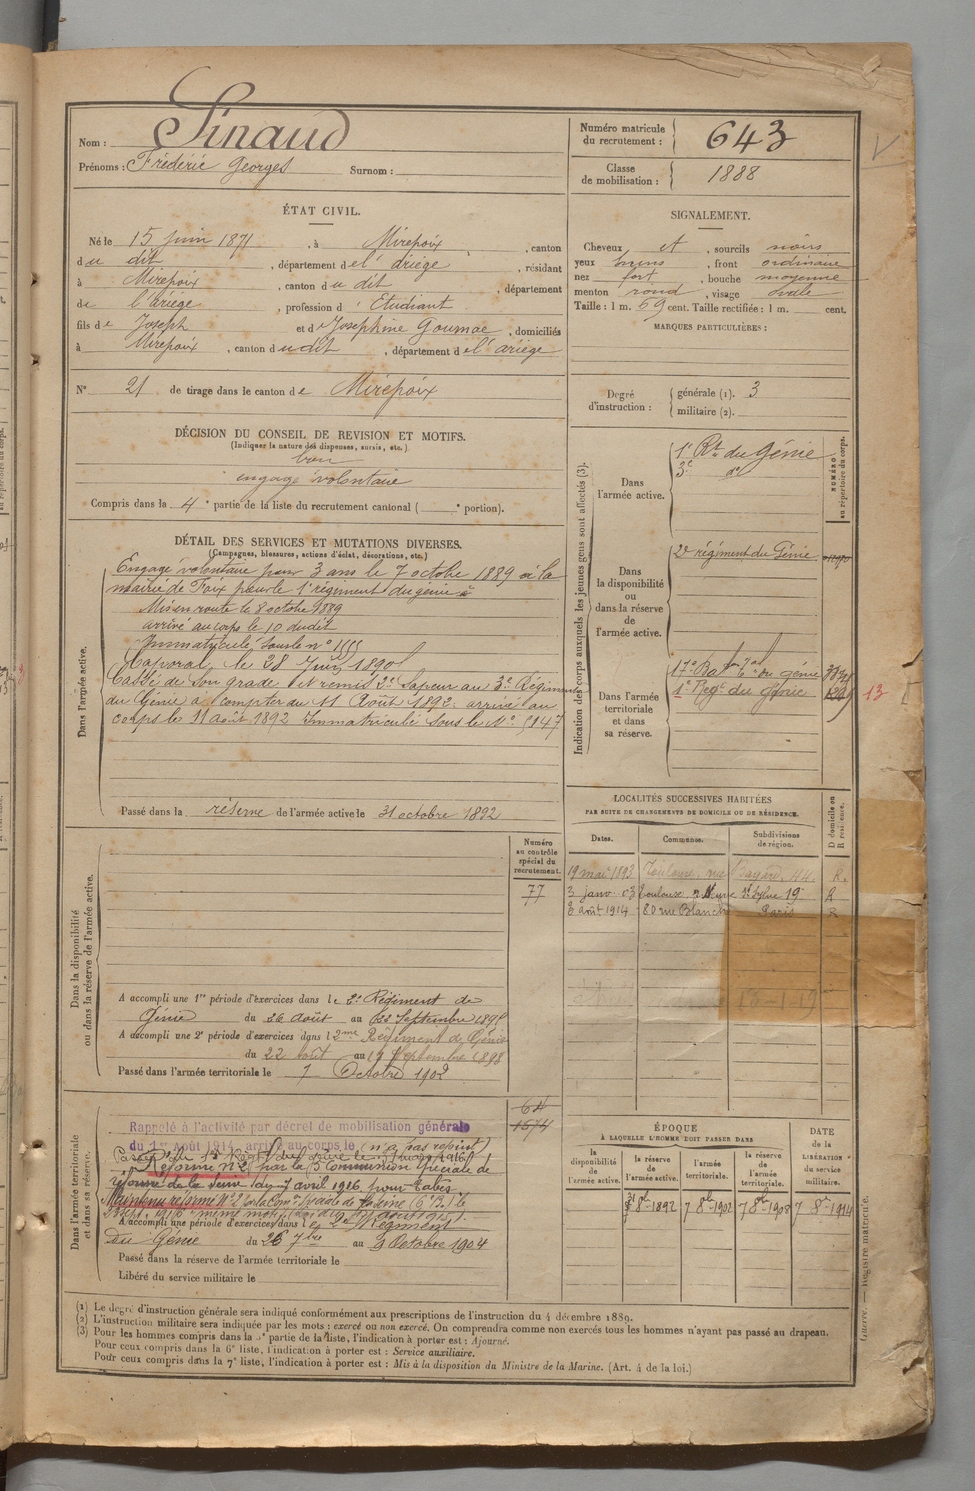 Nom : Sinaud
Prénoms : Frédéric Georges Surnom :
Numéro matricule du recrutement : 643
Classe de mobilisation : 1888
ÉTAT CIVIL.
Né le 15 Juin 1871, à Mirepoix, canton
du dit, département de l'ariège, résidant
à Mirepoix, canton du dit, département
de l'ariège, profession d'Etudiant
fils de Joseph et de Josephine Goumae, domiciliés
à Mirepoix, canton dudit, département de l'ariège
N° 21 de tirage dans le canton de Mirepoix
SIGNALEMENT.
Cheveux et, sourcils noirs
yeux bruns, front ordinaire
nez fort, bouche moyenne
menton rond, visage ovale
Taille : 1 m. 69 cent. Taille rectifiée : 1 m. cent.
MARQUES PARTICULIÈRES :
Degré d'instruction : générale (1). 3
militaire (2).
DÉCISION DU CONSEIL DE REVISION ET MOTIFS.
(Indiquer la nature des dispenses, sursis, etc.)
bon
engagé volontaire
Compris dans la 4e partie de la liste du recrutement cantonal ( e portion).
DÉTAIL DES SERVICES ET MUTATIONS DIVERSES.
(Campagnes, blessures, actions d'éclat, décorations, etc.)
Dans l'armée active.
Engagé volontaire pour 3 ans le 7 octobre 1889 à la
mairie de Foix pour le 1er régiment du génie
Mis en route le 8 octobre 1889
arrivé au corps le 10 dudit
Immatriculé sous le n° 1555
Caporal, le 28 Juin 1890
Cassé de son grade et remis 2e Sapeur au 3e Régiment
du Génie à compter du 11 Août 1892. arrivé au
corps le 31 août 1892 Immatriculé sous le N° 5147
Passé dans la réserve de l'armée active le 31 octobre 1892
Indication des corps auxquels les jeunes gens sont affectés (3).
NUMÉRO au répertoire du corps.
Dans l'armée active.
1er Rt du Génie
3e do
Dans la disponibilité ou dans la réserve de l'armée active.
2e régiment du Génie
Dans l'armée territoriale et dans sa réserve.
17e Bat du génie
1er Regt du génie
13
LOCALITÉS SUCCESSIVES HABITÉES
PAR SUITE DE CHANGEMENTS DE DOMICILE OU DE RÉSIDENCE.
Dates. Communes. Subdivisions de région. D domicile ou R résidence.
19 mai 1893 Toulouse, rue Bayard, 44. R.
3 janv. 03 Toulouse 19 R
8 août 1914 80 rue Blanche Paris R
Dans la disponibilité ou dans la réserve de l'armée active.
Numéro au contrôle spécial du recrutement.
77
A accompli une 1re période d'exercices dans le 2e Régiment de
Génie du 26 août au 22 Septembre 1895
A accompli une 2e période d'exercices dans le 2me Régiment de Génie
du 22 août au 19 Septembre 1898
Passé dans l'armée territoriale le 7 Octobre 1902
Dans l'armée territoriale et dans sa réserve.
64
1574
Rappelé à l'activité par décret de mobilisation générale
du 1er Août 1914, arrivé au corps le (n'a pas rejoint)
Réformé n° 2 par la 5e Commission Spéciale de
réforme de la Seine du 7 avril 1916 pour tabès
Maintenu réformé N° 2
A accompli une période d'exercices dans le 2e Régiment
du Génie du 26 7bre au 3 Octobre 1904
Passé dans la réserve de l'armée territoriale le
Libéré du service militaire le
ÉPOQUE
À LAQUELLE L'HOMME DOIT PASSER DANS
la disponibilité de l'armée active. la réserve de l'armée active. l'armée territoriale. la réserve de l'armée territoriale. DATE de la LIBÉRATION du service militaire.
31 8bre 1892 7 8bre 1902 7 8bre 1908 7 8re 1914
(1) Le degré d'instruction générale sera indiqué conformément aux prescriptions de l'instruction du 4 décembre 1889.
(2) L'instruction militaire sera indiquée par les mots : exercé ou non exercé. On comprendra comme non exercés tous les hommes n'ayant pas passé au drapeau.
(3) Pour les hommes compris dans la 5e partie de la liste, l'indication à porter est : Ajourné.
Pour ceux compris dans la 6e liste, l'indication à porter est : Service auxiliaire.
Pour ceux compris dans la 7e liste, l'indication à porter est : Mis à la disposition du Ministre de la Marine. (Art. 4 de la loi.)
Guerre. — Registre matricule.